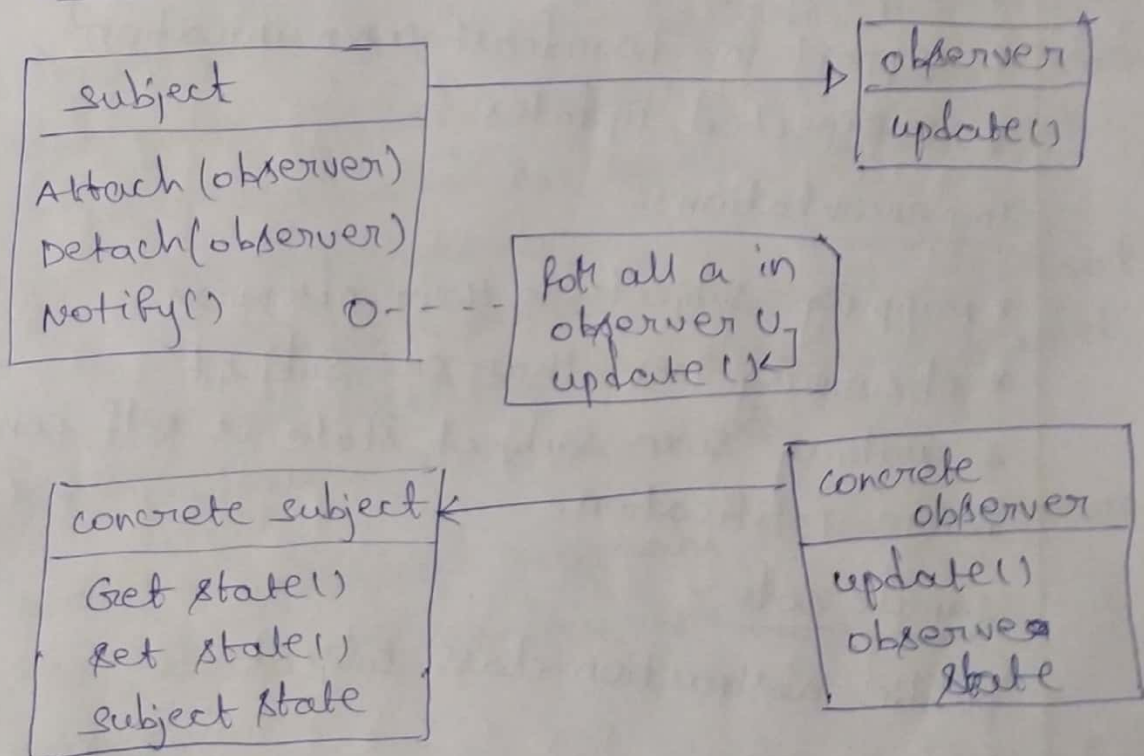 subject
Attach (observer)
Detach (observer)
Notify()
observer
update()
for all a in
observer
update ()
concrete subject
Get state()
set state()
subject state
concrete
observer
update()
observer
state